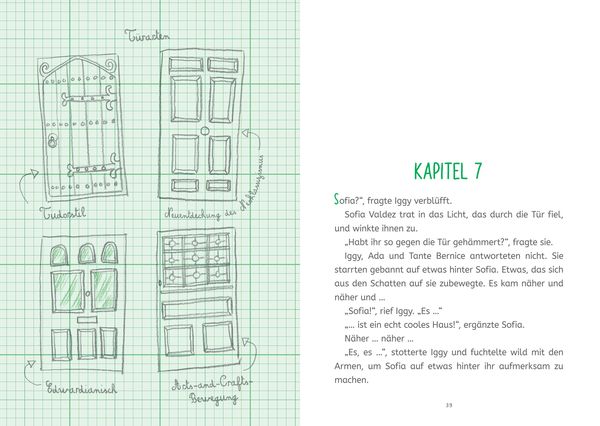 Türarten
Tudorstil
Neuentdeckung des
Edwardianisch
Arts-and-Crafts-
Bewegung
KAPITEL 7
Sofia?“, fragte Iggy verblüfft.
Sofia Valdez trat in das Licht, das durch die Tür fiel,
und winkte ihnen zu.
„Habt ihr so gegen die Tür gehämmert?“, fragte sie.
Iggy, Ada und Tante Bernice antworteten nicht. Sie
starrten gebannt auf etwas hinter Sofia. Etwas, das sich
aus den Schatten auf sie zubewegte. Es kam näher und
näher und ...
„Sofia!“, rief Iggy. „Es ...“
„... ist ein echt cooles Haus!“, ergänzte Sofia.
Näher ... näher ...
„Es, es ...“, stotterte Iggy und fuchtelte wild mit den
Armen, um Sofia auf etwas hinter ihr aufmerksam zu
machen.
39